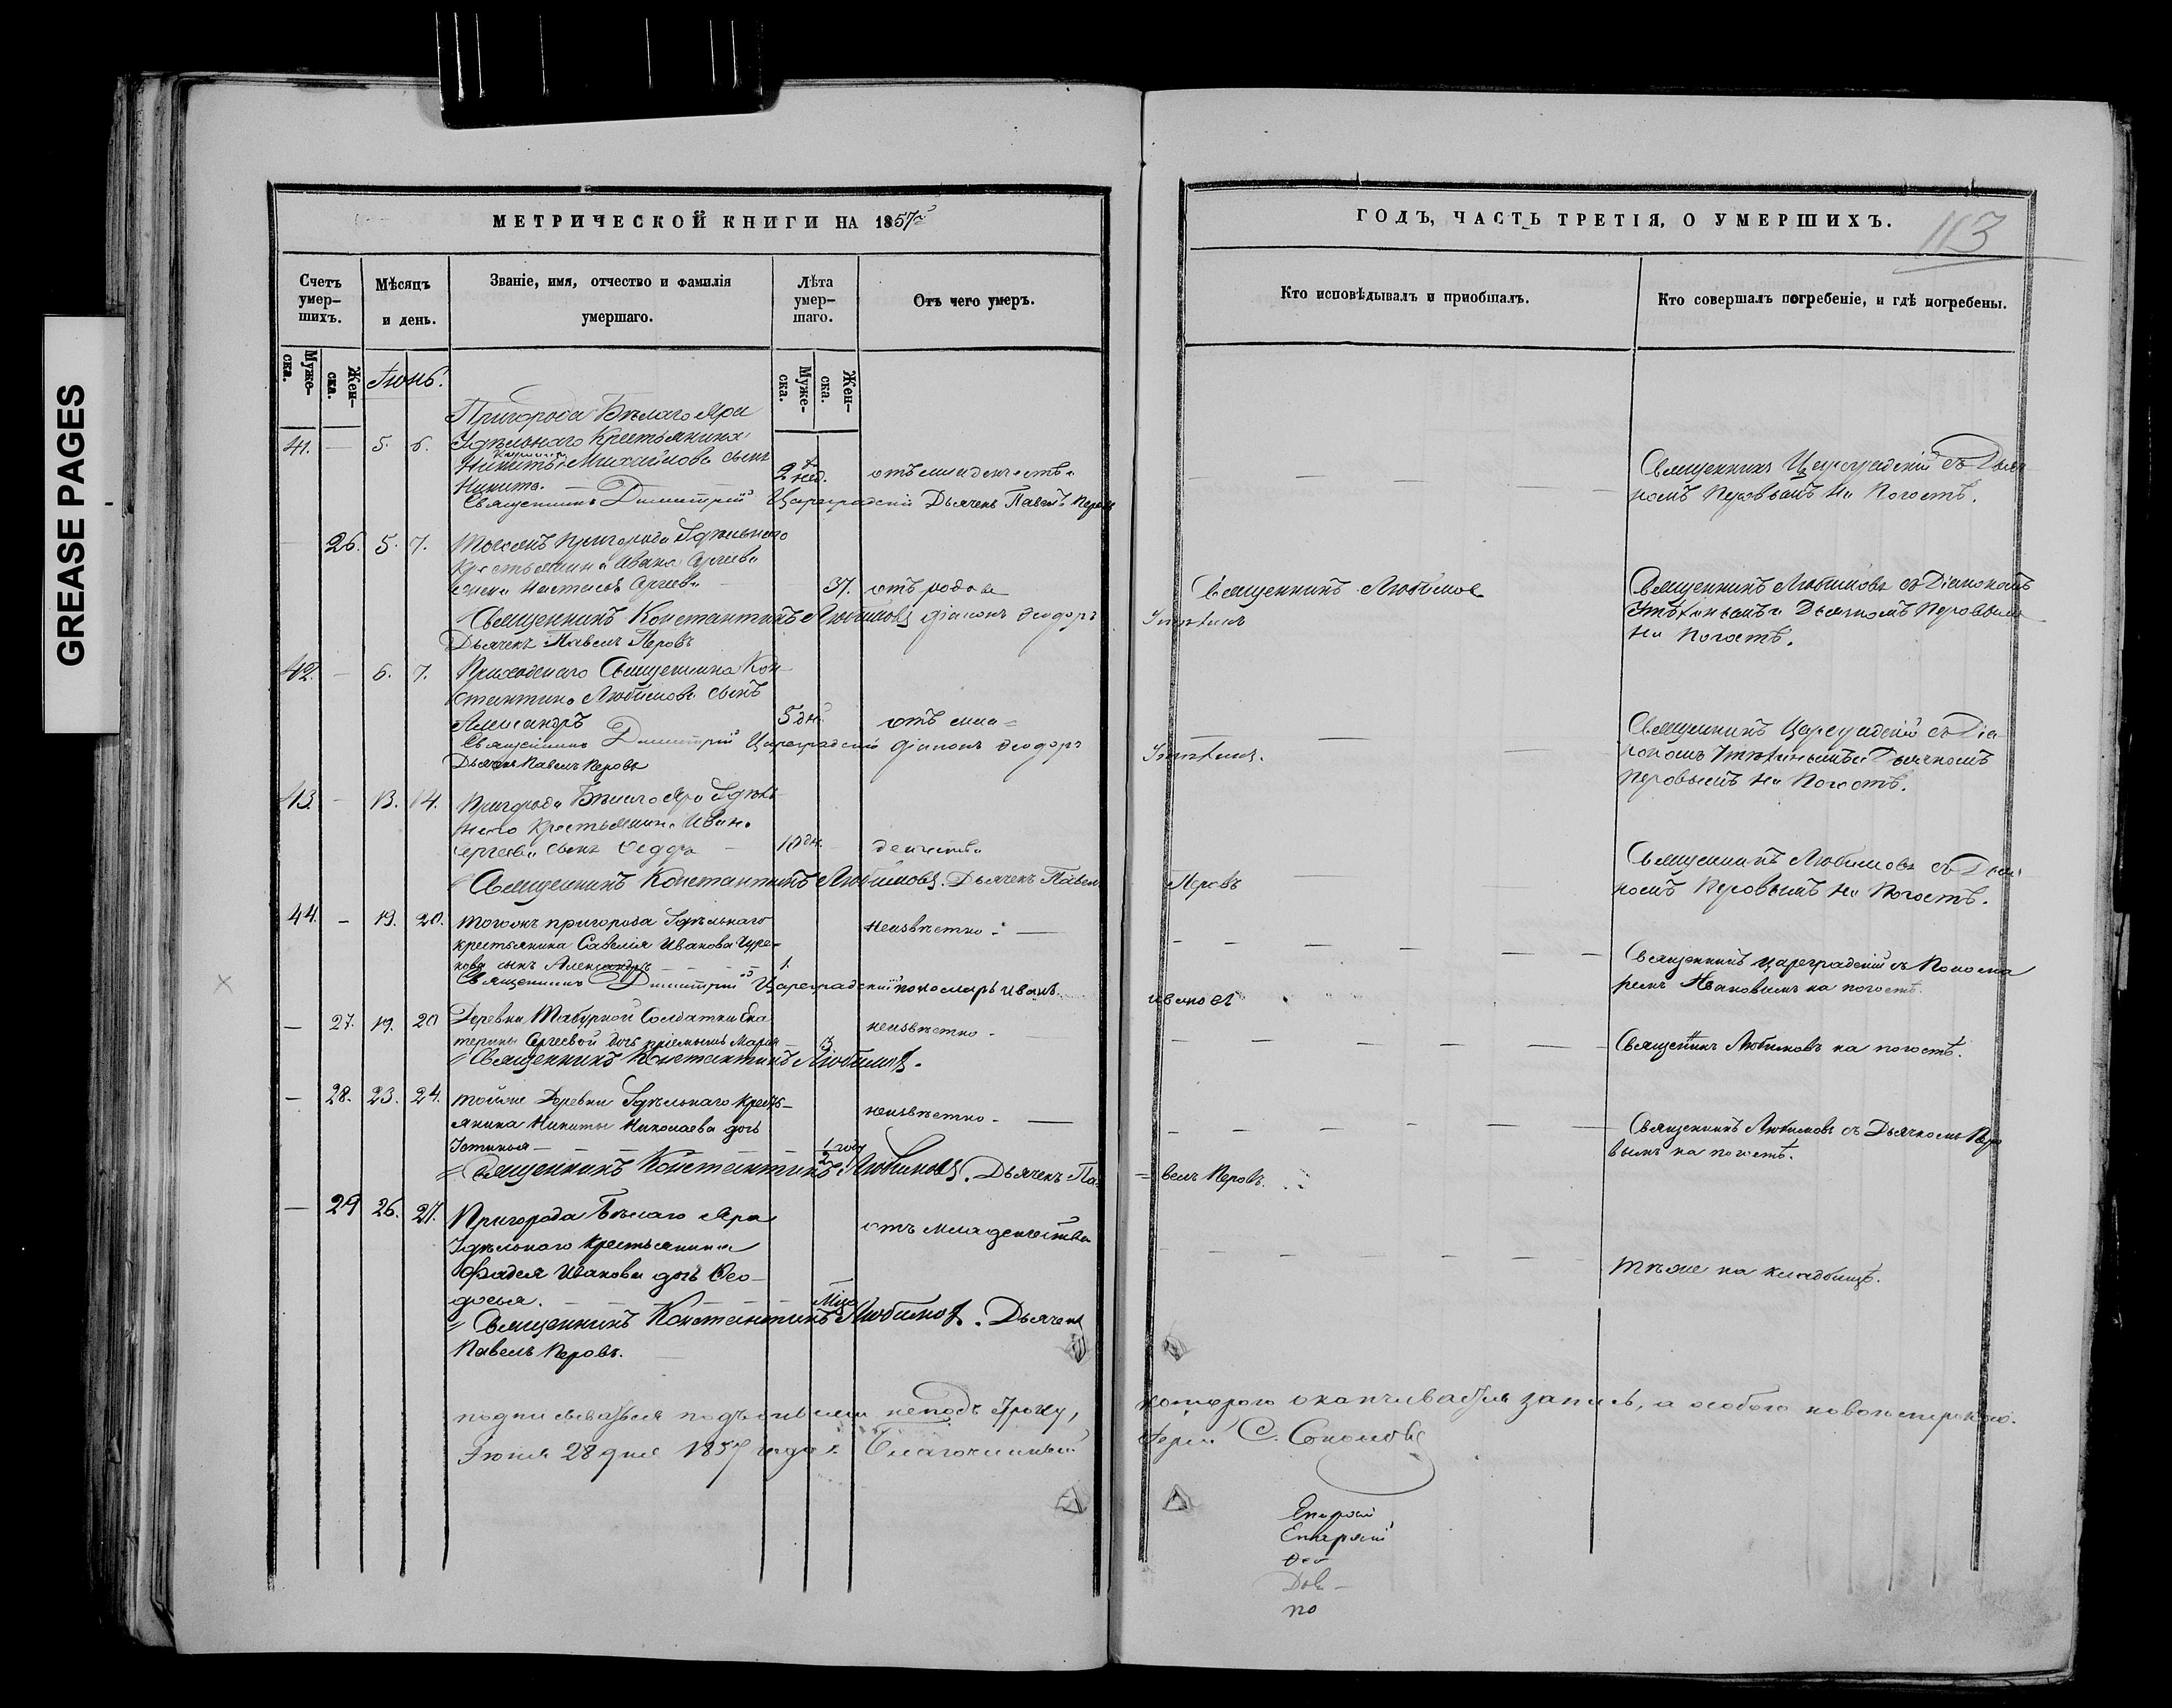 GREASE PAGES
МЕТРИЧЕСКОЙ КНИГИ НА 1857й
Счетъ умер-
шихъ.
Мѣсяцъ
и день.
Званіе, имя, отчество и фамилія
умершаго.
Лѣта
умер-
шаго.
Отъ чего умеръ.
Муже-
ска.
Жен-
ска.
Іюнь.
Муже-
ска.
Жен-
ска.
Пригорода Бѣлаго Яра
41. — 5. 6. Удѣльнаго Крестьянина
Никиты Михайлова сынъ
Никита. — 2 нед. отъ младенчества
Священникъ Димитрій Цареградскій Дьячекъ Павелъ Перовъ
26. 5. 7. Тогожъ пригорода Удѣльнаго
Крестьянина Ивана Сергеева
жена Настасья Сергеева 37. отъ родовъ
Священникъ Константинъ Любимовъ діаконъ Ѳеодоръ
Дьячекъ Павелъ Перовъ
42. — 6. 7. Приходскаго Священника Кон
стантина Любимова сынъ
Александръ 5 дн. отъ мла=
Священникъ Димитрій Цареградскій діаконъ Ѳеодоръ
Дьячекъ Павелъ Перовъ
43. — 13. 14. Пригорода Бѣлаго Яра Удѣль
наго Крестьянина Ивана
Сергеева сынъ Ѳедоръ 10 дн. денчества
Священникъ Константинъ Любимовъ. Дьячекъ Павелъ
44. — 19. 20. тогожъ пригорода Удѣльнаго неизвѣстно. —
крестьянина Савелія Иванова Чуре-
кова сынъ Александръ — — 1.
Священникъ Димитрій Цареградскій пономарь Иванъ
— 27. 19. 20 Деревни Табурной Солдатки Ека неизвѣстно -
терины Сергеевой дочь пріемышъ Марья — 3.
Священникъ Константинъ Любимовъ.
— 28. 23. 24. тойже Деревни Удѣльнаго крест- неизвѣстно - —
янина Никиты Николаева дочь
Устинья — 1/2 году
Священникъ Константинъ Любимовъ. Дьячекъ Па=
— 29 26. 27. Пригорода Бѣлаго Яра отъ младенчества
Удѣльнаго крестьянина
Фадея Иванова дочь Ѳео-
досья.
Священникъ Константинъ Любимовъ. Дьячекъ
Павелъ Перовъ.
подписываться подъ
Іюня 28 дня 1857 года. Благочинный
ГОДЪ, ЧАСТЬ ТРЕТІЯ, О УМЕРШИХЪ.
113
Кто исповѣдывалъ и пріобщалъ.
Кто совершалъ погребеніе, и гдѣ погребены.
Священникъ Цареградскій съ Дьяч
комъ Перовымъ на Погостѣ.
Священникъ Любимовъ
Священникъ Любимовъ съ Діакономъ
Дьячкомъ Перовымъ
на Погостѣ.
Священникъ Цареградскій съ Діа
кономъ Дьячкомъ
Перовымъ на Погостѣ.
Священникъ Любимовъ съ Дьяч
комъ Перовымъ на Погостѣ.
Перовъ
Священникъ Цареградскій съ Понома
ремъ Ивановымъ на погостѣ.
Ивановъ
Священникъ Любимовъ на погостѣ.
Священникъ Любимовъ съ Дьячкомъ Перо
вымъ на погостѣ.
= велъ Перовъ.
Тѣже на кладбищѣ.
котораго оканчивается запись, а особого
Іерей С. Соколовъ
Епархій
Епархій
Ѳео
Дов —
по